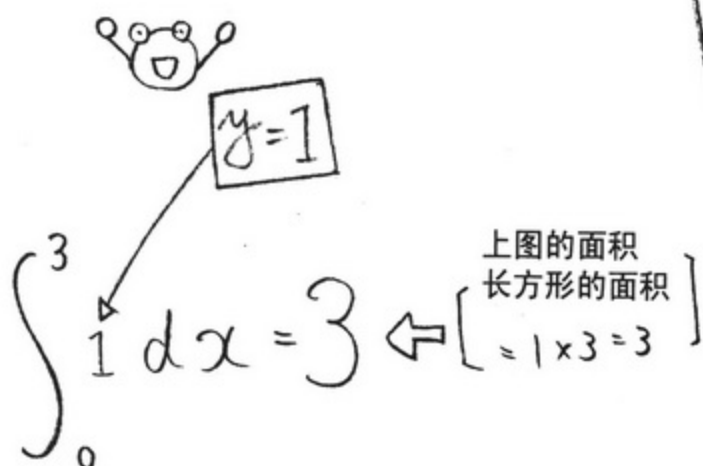 y=1
∫₀³ 1 dx = 3
上图的面积
长方形的面积
=1×3=3